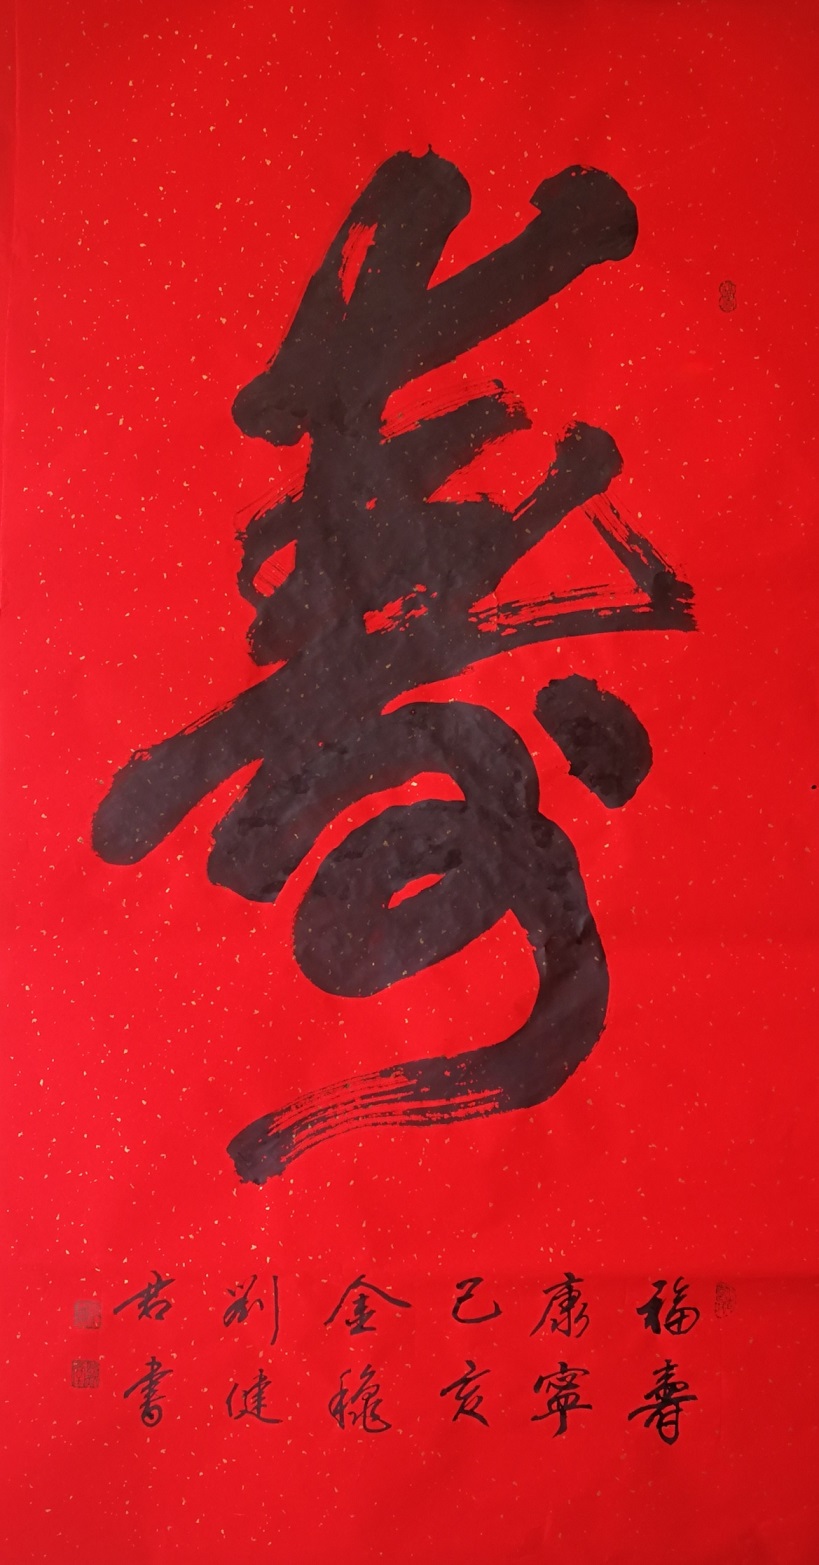 寿
福壽
康寧
己亥
金穐
劉健
君書